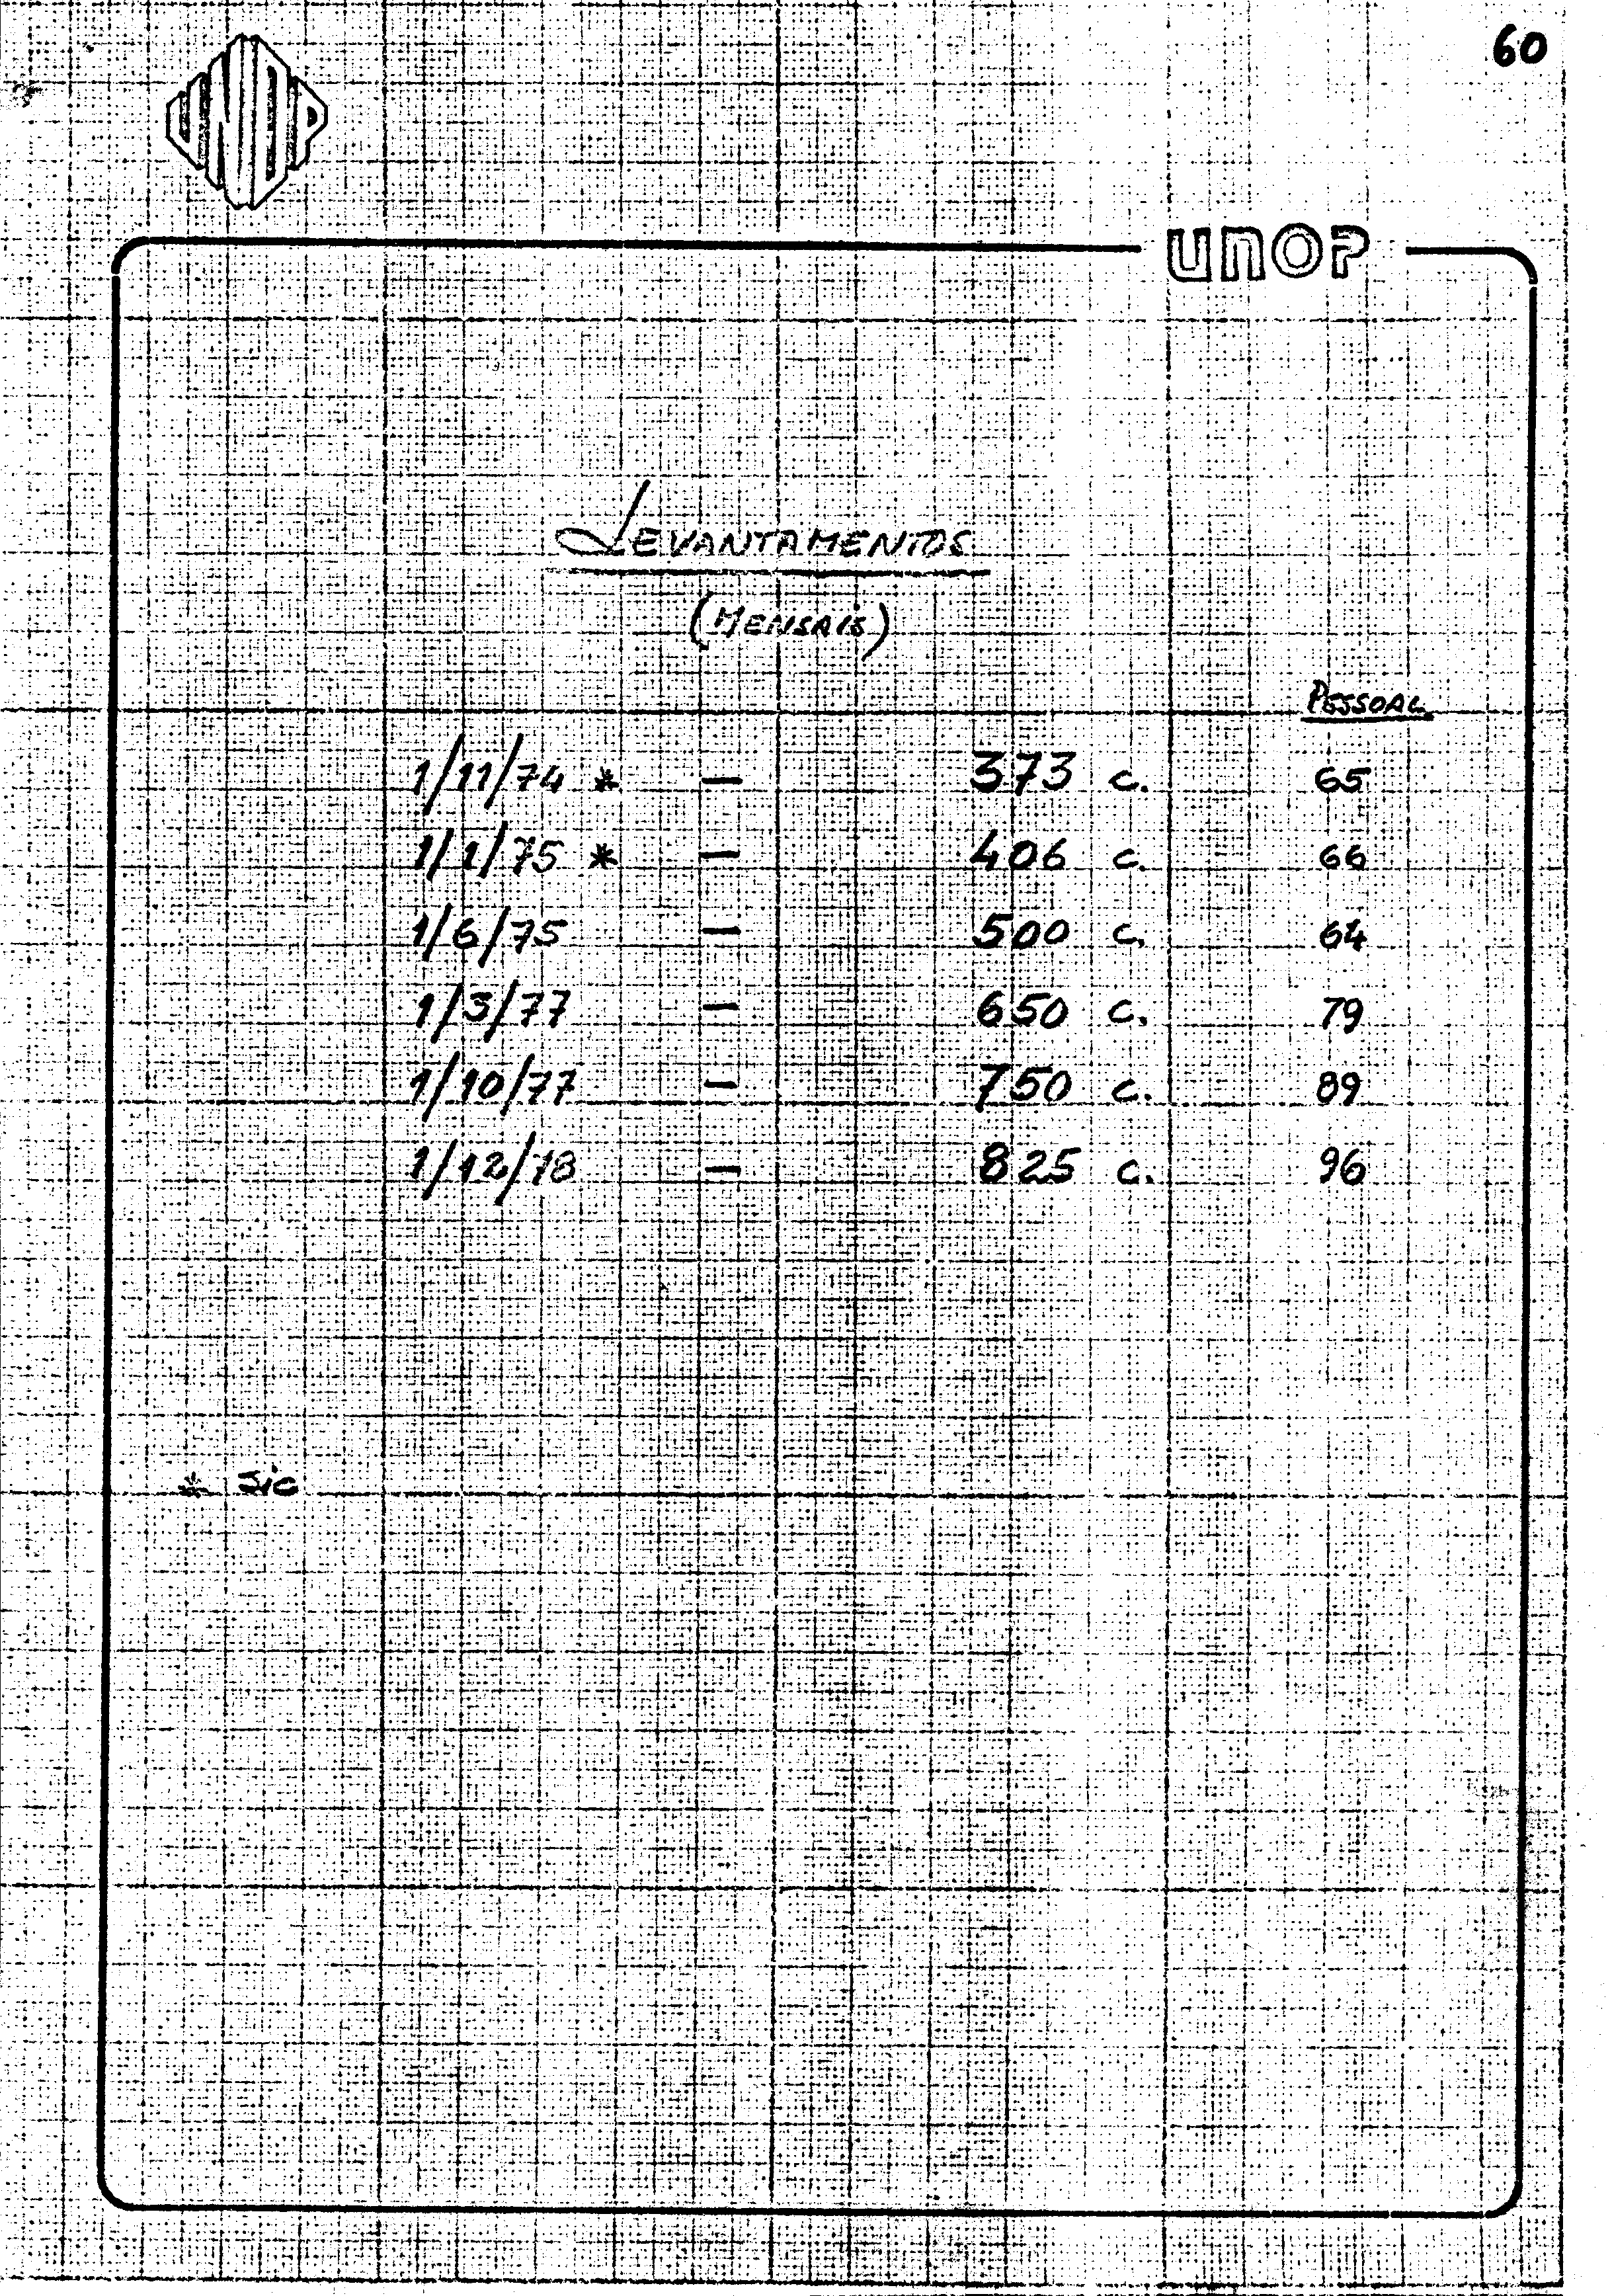 60
UNOP
LEVANTAMENTOS
(MENSAIS)
PESSOAL
1/11/74 * — 373 c. 65
1/1/75 * — 406 c. 66
1/6/75 — 500 c. 64
1/3/77 — 650 c. 79
1/10/77 — 750 c. 89
1/12/78 — 825 c. 96
* sic